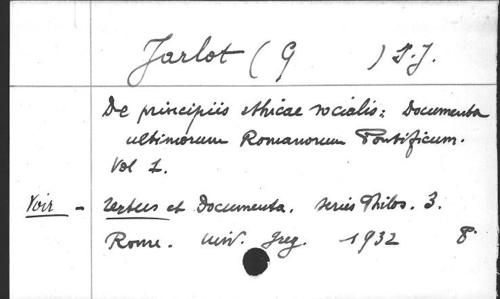 Jarlot (G ) S.J.
De principiis ethicae socialis: Documenta
ultimorum Romanorum Pontificum.
Vol 1.
Voir - Textus et Documenta. series Philos. 3.
Rome. Univ. Greg. 1932 8°